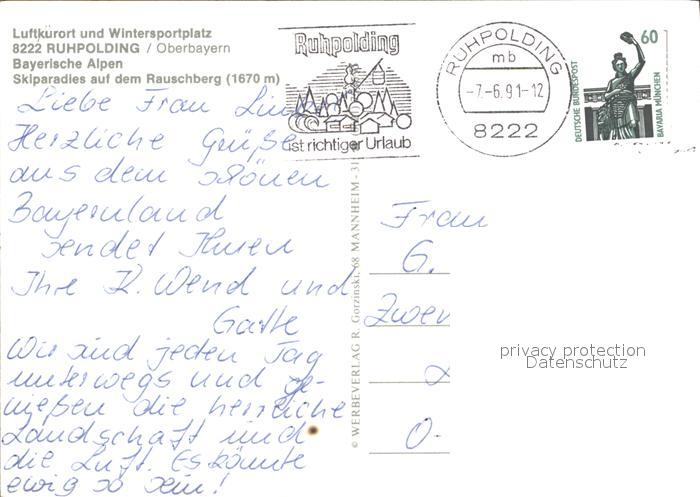 Luftkurort und Wintersportplatz
8222 RUHPOLDING / Oberbayern
Bayerische Alpen
Skiparadies auf dem Rauschberg (1670 m)
Ruhpolding
ist richtiger Urlaub
RUHPOLDING
mb
-7.-6.91-12
8222
60
DEUTSCHE BUNDESPOST
BAVARIA MÜNCHEN
Liebe Frau
Herzliche Grüße
aus dem schönen
Bayernland
sendet Ihnen
Ihre K. Wend und
Gatte
Wir sind jeden Tag
unterwegs und ge-
nießen die herrliche
Landschaft und
die Luft. Es könnte
ewig so sein!
© WERBEVERLAG R. Gorzinski, 68 MANNHEIM - 31
Frau
G.
privacy protection
Datenschutz